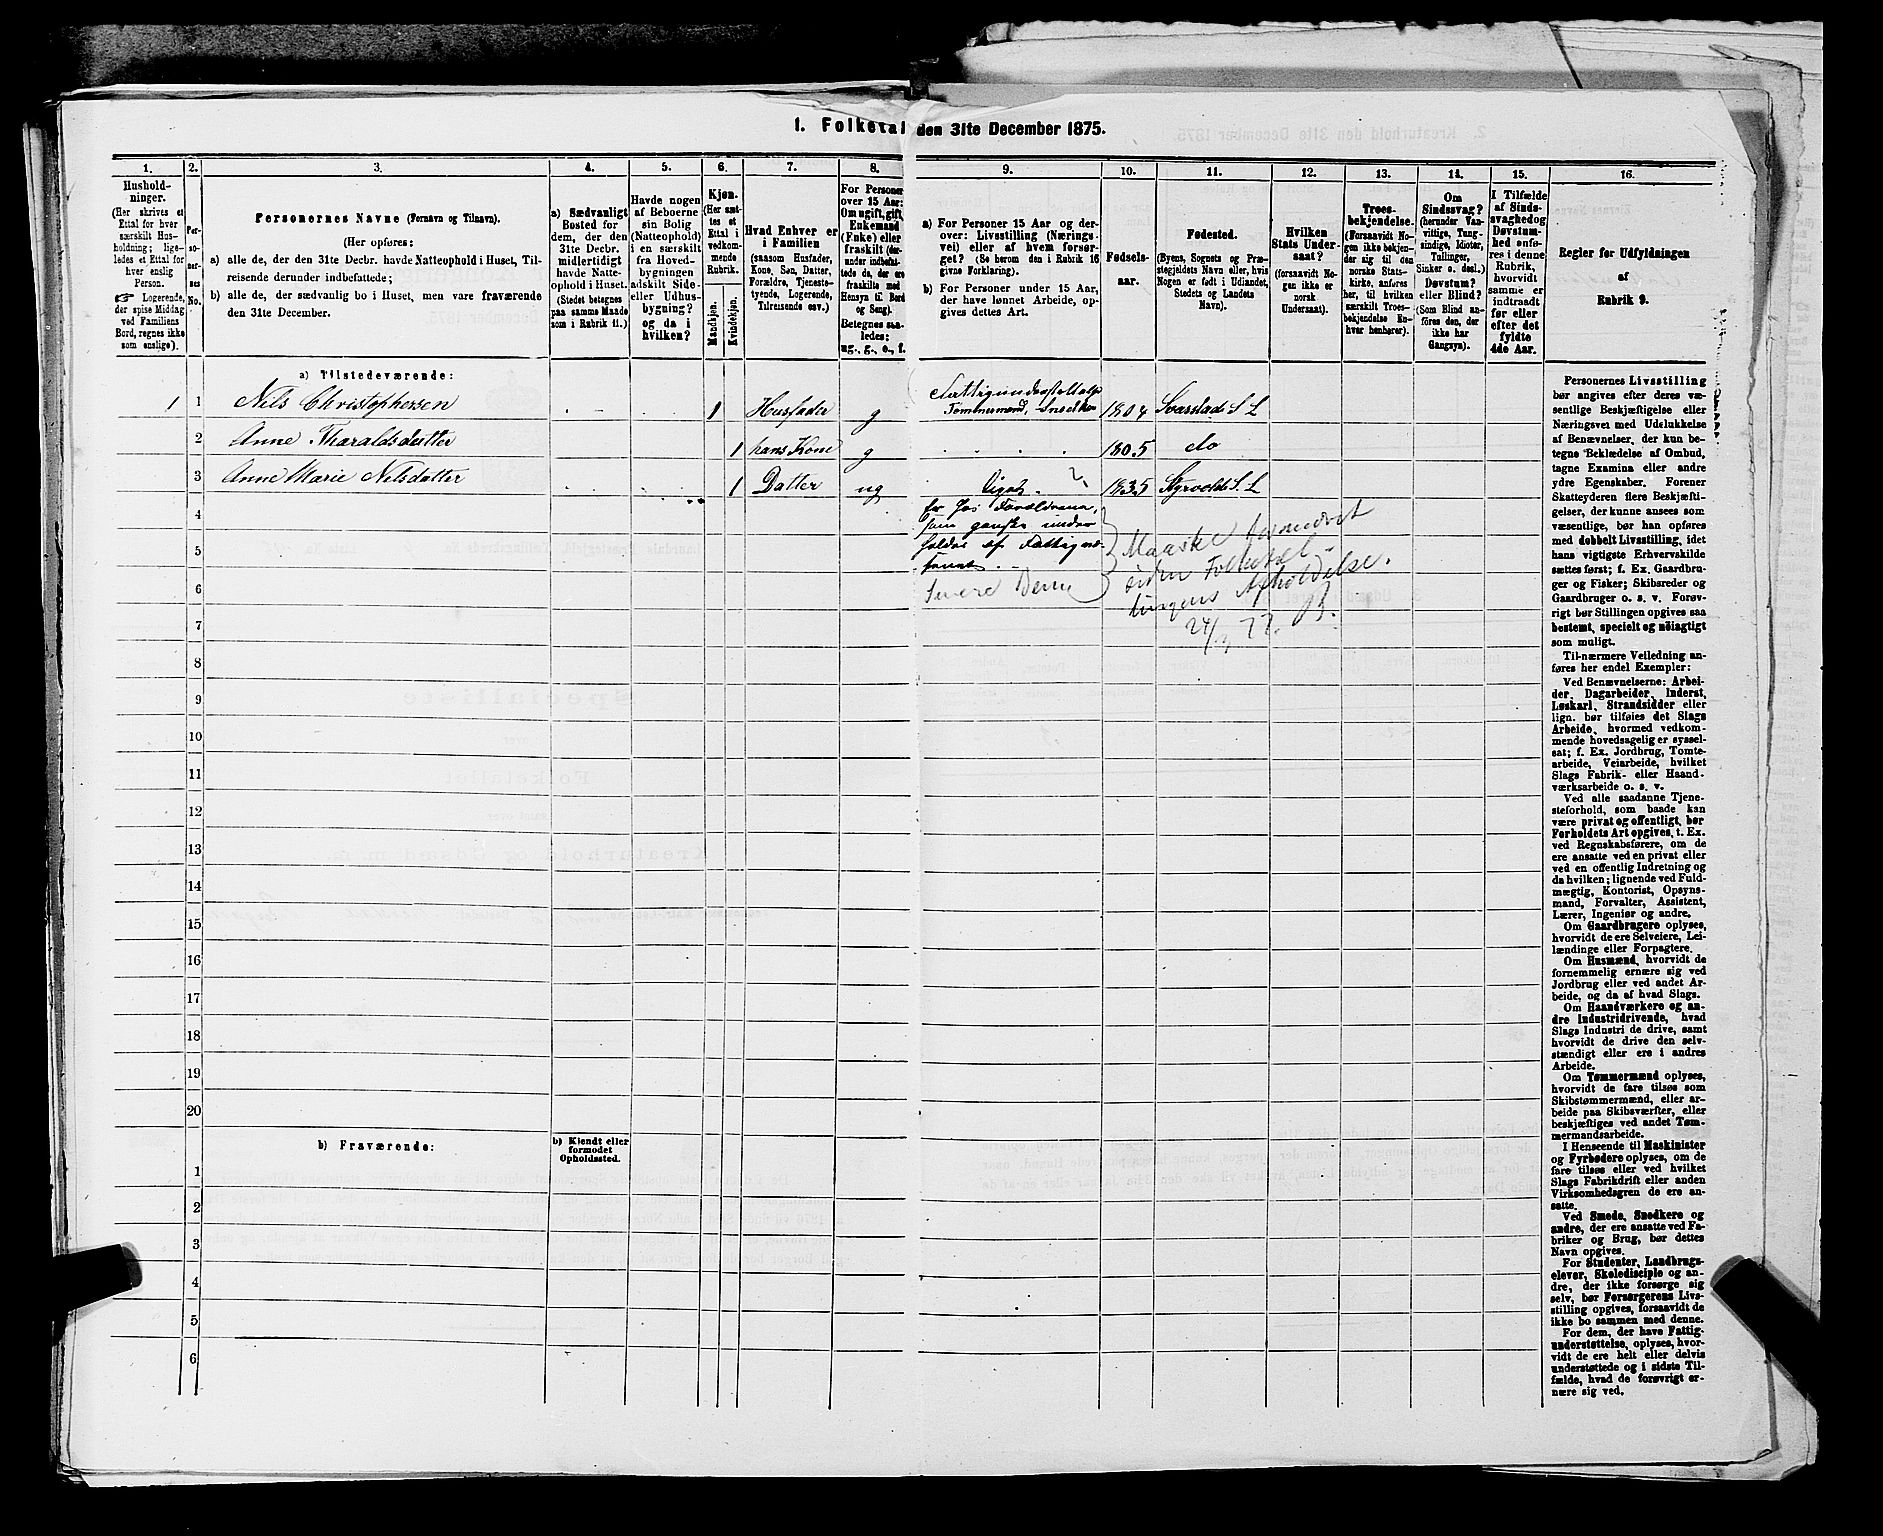 1. Folketal den 31te December 1875.
1. 2. 3. 4. 5. 6. 7. 8. 9. 10. 11. 12. 13. 14. 15. 16.
Hushold-
ninger.
(Her skrives et
Ettal for hver
særskilt Hus-
holdning; lige-
ledes et Ettal for
hver enslig
Person.
☞ Logerende,
der spise Middag
ved Familiens
Bord, regnes ikke
som enslige).
Per-
so-
ner-
nes
No.
Personernes Navne (Fornavn og Tilnavn).
(Her opføres:
a) alle de, der den 31te Decbr. havde Natteophold i Huset, Til-
reisende derunder indbefattede;
b) alle de, der sædvanlig bo i Huset, men vare fraværende
den 31te December.
a) Sædvanligt
Bosted for
dem, der den
31te Decbr.
midlertidigt
havde Natte-
ophold i Huset.
(Stedet betegnes
paa samme Maade
som i Rubrik 11.)
Havde nogen
af Beboerne
sin Bolig
(Natteophold)
i en særskilt
fra Hoved-
bygningen
adskilt Side-
eller Udhus-
bygning?
og da i
hvilken?
Kjøn.
(Her sæt-
tes et
Ettal i
vedkom-
mende
Rubrik.
Mandkjøn.
Kvindekjøn.
Hvad Enhver er
i Familien
(saasom Husfader,
Kone, Søn, Datter,
Forældre, Tjeneste-
tyende, Logerende,
Tilreisende osv.)
For Personer
over 15 Aar:
Om ugift, gift,
Enkemand
(Enke) eller
fraskilt (der-
under indbefat-
tede da, der ere
fraskilte med
Hensyn til Bord
og Seng).
Betegnes saa-
ledes:
ug., g., e., f.
a) For Personer 15 Aar og der-
over: Livsstilling (Nærings-
vei) eller af hvem forsør-
get? (Se herom den i Rubrik 16
givne Forklaring).
b) For Personer under 15 Aar,
der have lønnet Arbeide, op-
gives dettes Art.
Fødsels-
aar.
Fødested.
(Byens, Sognets og Præ-
stegjeldets Navn eller, hvis
Nogen er født i Udlandet,
Stedets og Landets
Navn).
Hvilken
Stats Under-
saat?
(forsaavidt No-
gen ikke er
norsk
Undersaat).
Troes-
bekjendelse.
(Forsaavidt No-
gen ikke bekjen-
der sig til den
norske Stats-
kirke, anføres
her, til hvilken
særskilt Troes-
bekjendelse En-
hver henhører).
Om
Sindssvag?
(herunder Van-
vittige, Tung-
sindige, Idioter,
Tullinger,
Sinker o. desl.)
Døvstum?
eller Blind?
(Som Blind an-
føres den, der
ikke har
Gangsyn).
I Tilfælde
af Sinds-
svaghed og
Døvstum-
hed anfø-
res i denne
Rubrik,
hvorvidt
samme er
indtraadt
før eller
efter det
fyldte
4de Aar.
Regler for Udfyldningen
af
Rubrik 9.
a) Tilstedeværende:
1 1 Nels Christophersen 1 Husfader g Fattigunderstøttelse Tømmermand, Snedker 1804 Svarstad S. L
2 Anne Tharaldsdatter 1 hans Kone g 1805 do
3 Anne Marie Nilsdatter 1 Datter ug Ligel. 1835 Styrvold S. L
er hos Forældrene,
som ganske under
holdes af Fattigvæ-
senet.
Maaske
siden Folketæl-
lingens Afholdelse.
24/ 77. B.
4
5
6
7
8
9
10
11
12
13
14
15
16
17
18
19
20
b) Fraværende:
b) Kjendt eller
formodet
Opholdssted.
1
2
3
4
5
6
Personernes Livsstilling
bør angives efter deres væ-
sentlige Beskjæftigelse eller
Næringsvei med Udelukkelse
af Benævnelser, der kun be-
tegne Beklædelse af Ombud,
tagne Examina eller andre
ydre Egenskaber. Forener
Skatteyderen flere Beskjæfti-
gelser, der kunne ansees som
væsentlige, bør han opføres
med dobbelt Livsstilling, idet
hans vigtigste Erhvervskilde
sættes først; f. Ex. Gaardbru-
ger og Fisker; Skibsreder og
Gaardbruger o. s. v. Forøv-
rigt bør Stillingen opgives saa
bestemt, specielt og nøiagtigt
som muligt.
Til nærmere Veiledning an-
føres her endel Exempler:
Ved Benævnelserne: Arbei-
der, Dagarbeider, Inderst,
Løskarl, Strandsidder eller
lign. bør tilføies det Slags
Arbeide, hvormed vedkom-
mende hovedsagelig er syssel-
sat; f. Ex. Jordbrug, Tomte-
arbeide, Veiarbeide, hvilket
Slags Fabrik- eller Haand-
værksarbeide o. s. v.
Ved alle saadanne Tjene-
steforhold, som baade kan
være privat og offentligt, bør
Forholdets Art opgives, t. Ex.
ved Regnskabsførere, om de
ere ansatte ved en privat eller
ved en offentlig Indretning og
da hvilken; lignende ved Fuld-
mægtig, Kontorist, Opsyns-
mand, Forvalter, Assistent,
Lærer, Ingeniør og andre.
Om Gaardbrugere oplyses,
hvorvidt de ere Selveiere, Lei-
lændinge eller Forpagtere.
Om Husmænd, hvorvidt de
fornemmelig ernære sig ved
Jordbrug eller ved andet Ar-
beide, og da af hvad Slags.
Om Haandværkere og an-
dre Industridrivende, hvad
Slags Industri de drive, samt
hvorvidt de drive den selv-
stændigt eller ere i andres
Arbeide.
Om Tømmermænd oplyses,
hvorvidt de fare tilsøs som
Skibstømmermænd, eller ar-
beide paa Skibsværfter, eller
beskjæftiges ved andet Tøm-
mermandsarbeide.
I Henseende til Maskinister
og Fyrbødere oplyses, om de
fare tilsøs eller ved hvilket
Slags Fabrikdrift eller anden
Virksomhedsgren de ere an-
satte.
Ved Smede, Snedkere og
andre, der ere ansatte ved Fa-
briker og Brug, bør dettes
Navn opgives.
For Studenter, Landbrugs-
elever, Skoledisciple og an-
dre, der ikke forsørge sig
selv, bør Forsørgerens Livs-
stilling opgives, forsaavidt de
ikke bo sammen med denne.
For dem, der have Fattig-
understøttelse, oplyses, hvor-
vidt de ere helt eller delvis
understøttede og i sidste Til-
fælde, hvad de forøvrigt er-
nære sig ved.